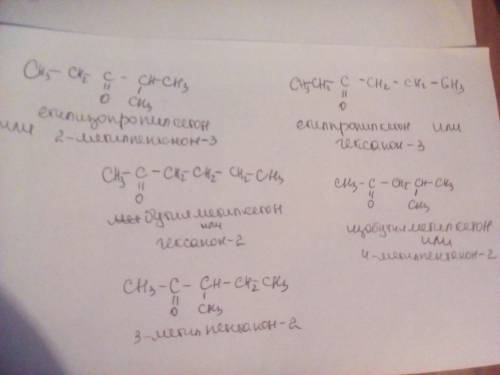 CH₃ – CH₂ – C – CH – CH₃
O CH₃
этилизопропилкетон
или 2-метилпентанон-3
CH₃CH₂ – C – CH₂ – CH₂ – CH₃
O
этилпропилкетон или
гексанон-3
CH₃ – C – CH₂ – CH₂ – CH₂ – CH₃
O
бутилметилкетон
или
гексанон-2
CH₃ – C – CH₂ – CH – CH₃
O CH₃
изобутилметилкетон
или
4-метилпентанон-2
CH₃ – C – CH – CH₂ – CH₃
O CH₃
3-метилпентанон-2